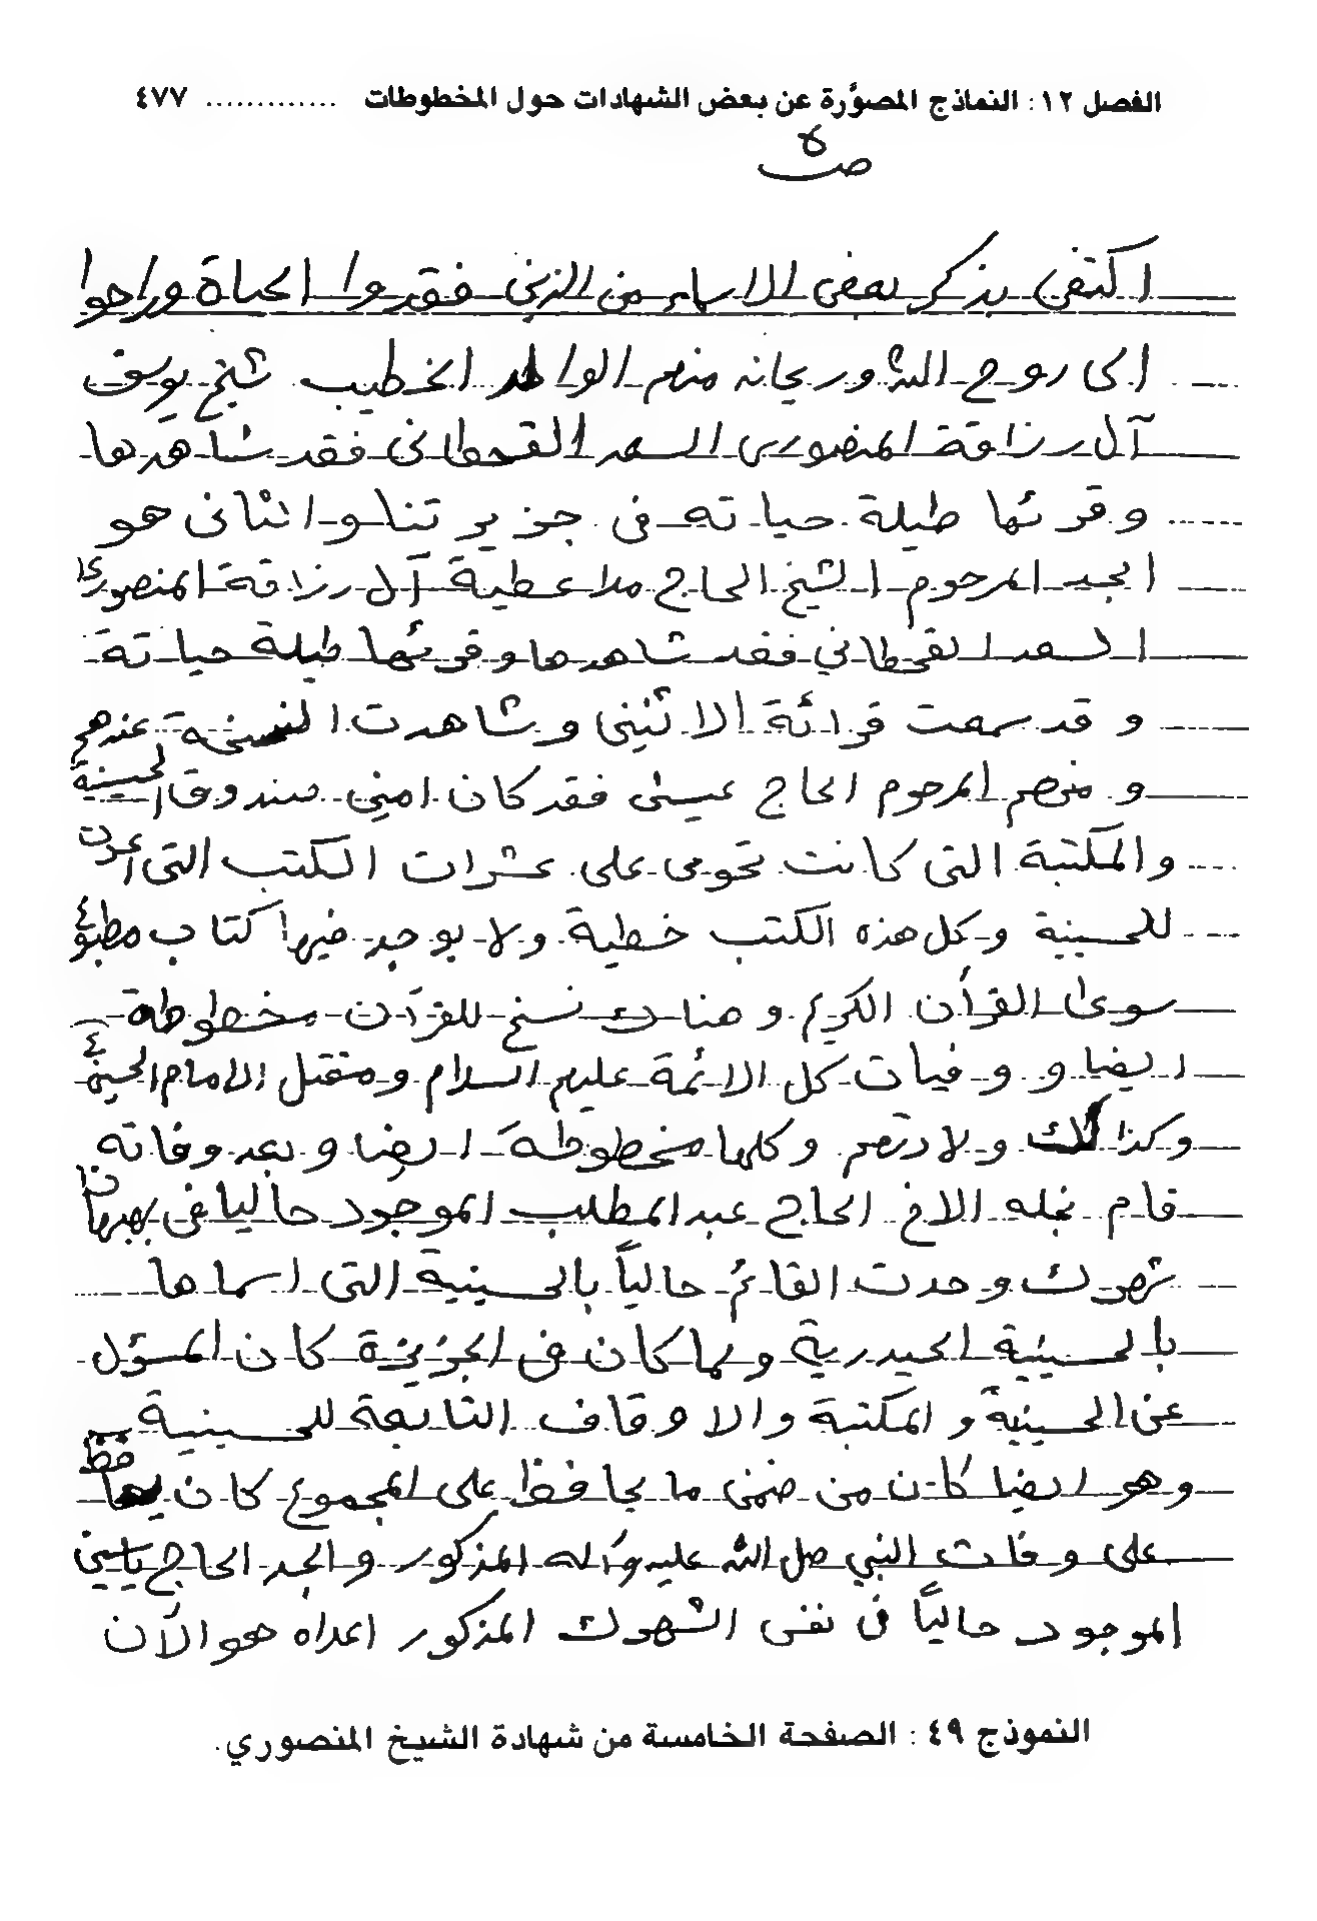 الفصل ١٢: النماذج المصوَّرة عن بعض الشهادات حول المخطوطات ............. ٤٧٧
ص٥
اكتفي بذكر بعض الاسماء من الذين فقدوا الحياة وراحوا
الى روح الله وريحانه منهم الوالد الخطيب شيخ يوسف
آل رزاقة المنصوري السعد القحطاني فقد شاهدها
وقرئها طيلة حياته في جزير تنا و الثاني هو
الجد المرحوم الشيخ الحاج ملا عطية آل رزاقة المنصوري
السعد القحطاني فقد شاهدها وقرئها طيلة حياتة
و قد سمعت قرائة الاثنين وشاهدت النسخة عندهم
و منهم المرحوم الحاج عيسى فقد كان امين صندوق الحسينية
والمكتبة التي كانت تحوي على عشرات الكتب التي اعدت
للحسينية وكل هذه الكتب خطية ولا يوجد فيها كتاب مطبوع
سوى القرأن الكريم و هناك نسخ للقرآن مخطوطة
ايضا و وفيات كل الائمة عليهم السلام ومقتل الامام الحسين ع
وكذالك ولادتهم وكلها مخطوطة ايضا و بعد وفاته
قام نجله الاخ الحاج عبد المطلب الموجود حاليا في بهبهان
شهرك وحدت القائم حالياً بالحسينية التي اسماها
بالحسينية الحيدرية و لما كان في الجزيرة كان المسؤل
عن الحسينية و المكتبة والاوقاف التابعة للحسينية
وهو ايضا كان من ضمن ما يحافظ على المجموع كان يحافظ
على وفات النبي صل الله عليه وآله المذكور والجد الحاج ياسين
الموجود حالياً في نفس الشهرك المذكور اعداه هو الآن
النموذج ٤٩: الصفحة الخامسة من شهادة الشيخ المنصوري.